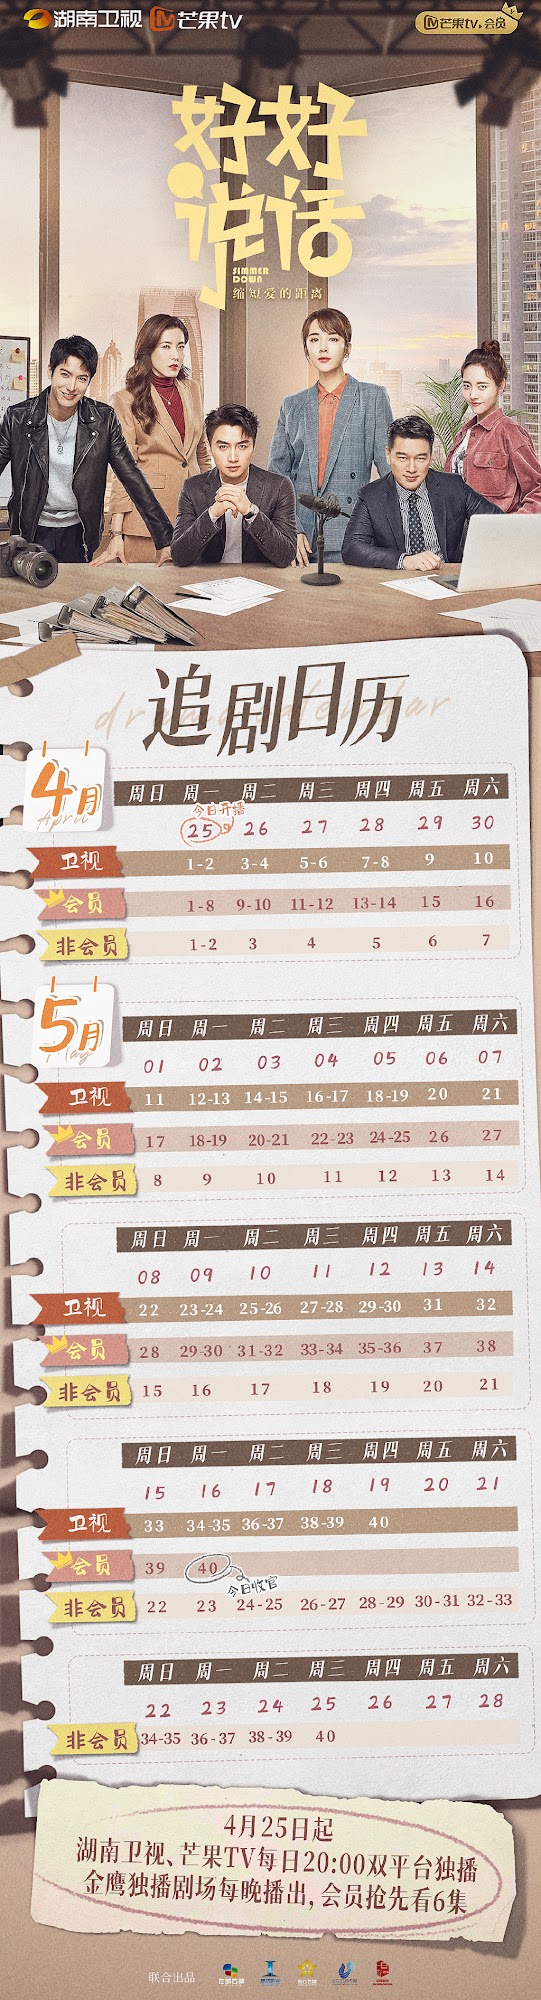 湖南卫视 芒果tv 芒果tv会员
好好
说话
SIMMER
DOWN
缩短爱的距离
drama calendar
追剧日历
4月 周日 周一 周二 周三 周四 周五 周六
April
今日开播
25 26 27 28 29 30
卫视 1-2 3-4 5-6 7-8 9 10
会员 1-8 9-10 11-12 13-14 15 16
非会员 1-2 3 4 5 6 7
5月 周日 周一 周二 周三 周四 周五 周六
May
01 02 03 04 05 06 07
卫视 11 12-13 14-15 16-17 18-19 20 21
会员 17 18-19 20-21 22-23 24-25 26 27
非会员 8 9 10 11 12 13 14
周日 周一 周二 周三 周四 周五 周六
08 09 10 11 12 13 14
卫视 22 23-24 25-26 27-28 29-30 31 32
会员 28 29-30 31-32 33-34 35-36 37 38
非会员 15 16 17 18 19 20 21
周日 周一 周二 周三 周四 周五 周六
15 16 17 18 19 20 21
卫视 33 34-35 36-37 38-39 40
会员 39 40
今日收官
非会员 22 23 24-25 26-27 28-29 30-31 32-33
周日 周一 周二 周三 周四 周五 周六
22 23 24 25 26 27 28
非会员 34-35 36-37 38-39 40
4月25日起
湖南卫视、芒果TV每日20:00双平台独播
金鹰独播剧场每晚播出,会员抢先看6集
联合出品